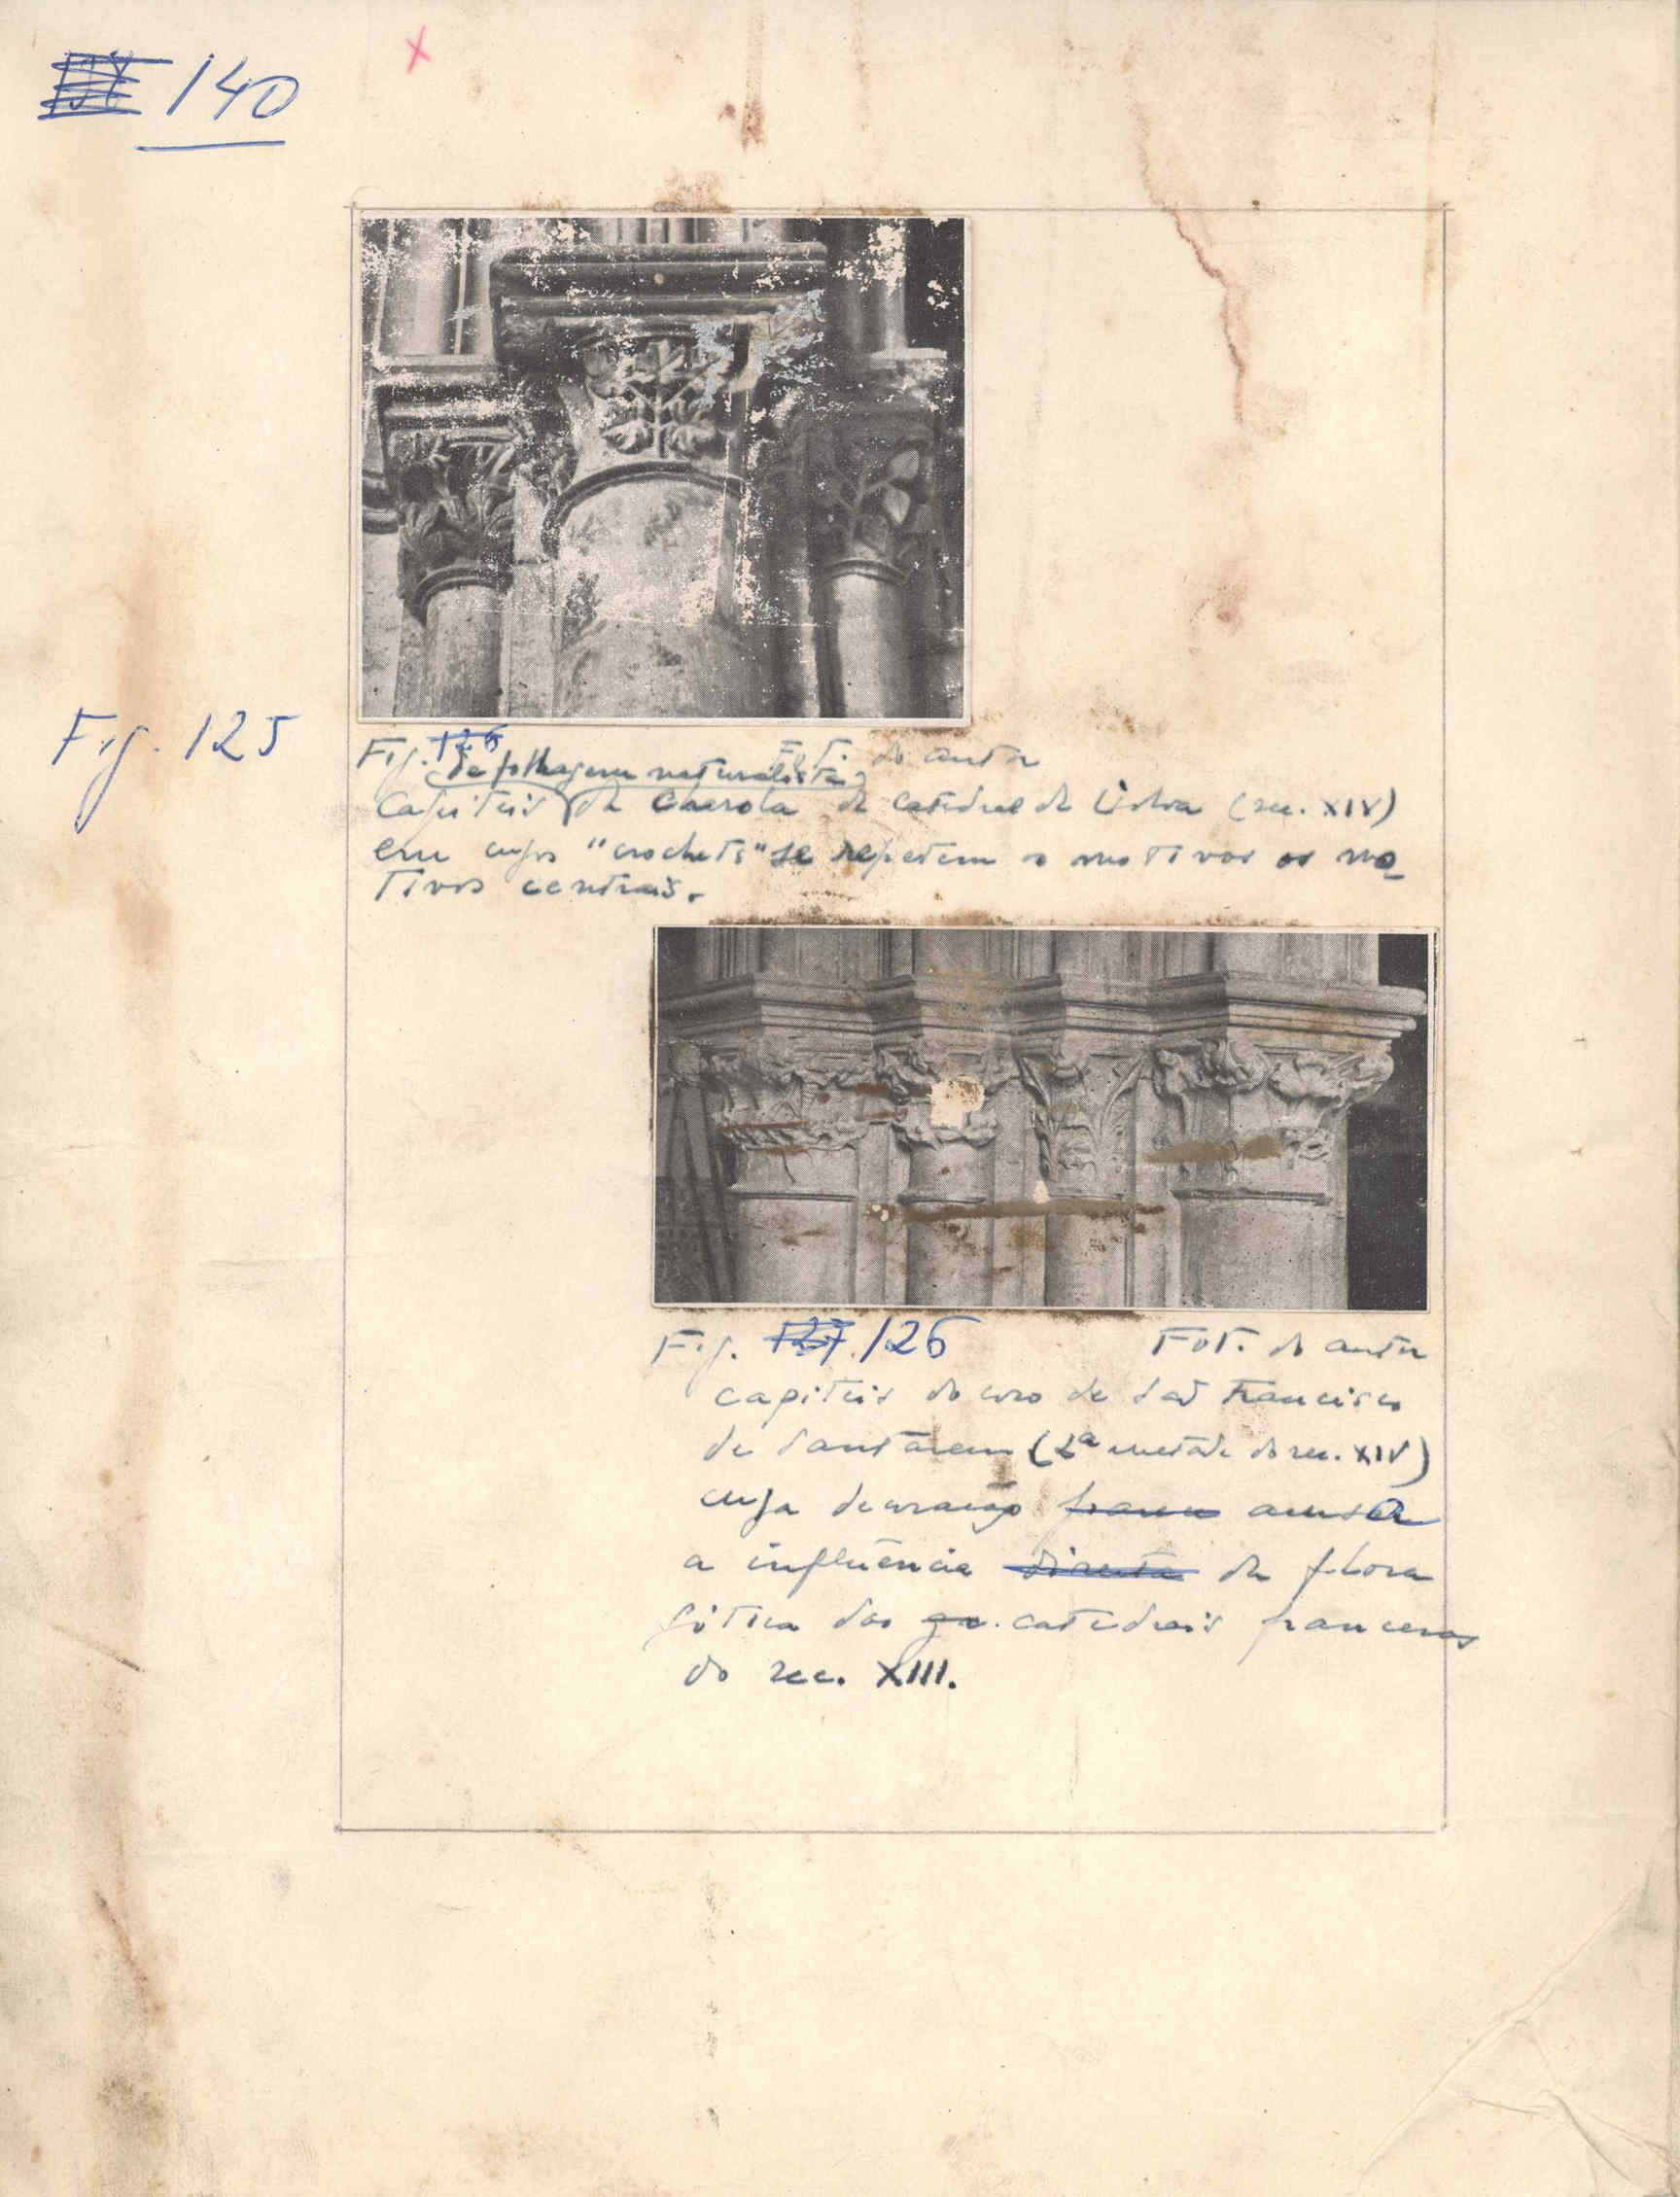 140
Fig. 125
Fig. 126 Fot. do autor
de folhagem naturalista
Capiteis da Charola da catedral de Lisboa (sec. XIV)
em cujos "crochets" se repetem os motivos os mo
tivos centrais.
Fig. 127 126 Fot. do autor
capiteis do coro de São Francisco
de Santarem (2ª metade do sec. XIV)
cuja decoração acusa
a influência directa da flora
gótica das gr. catedrais francesas
do sec. XIII.